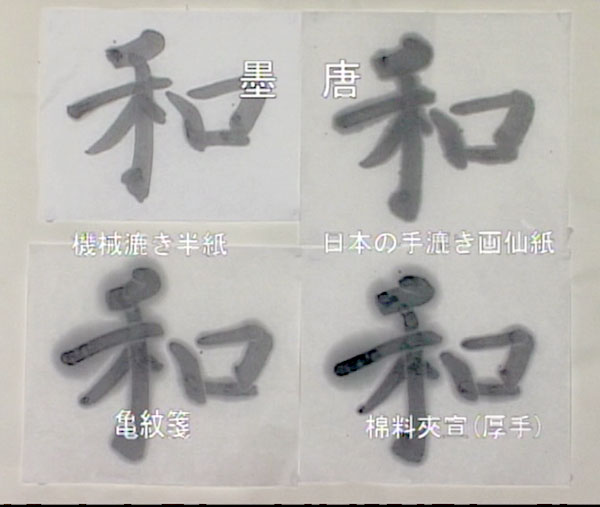 墨 唐
和 和
機械漉き半紙 日本の手漉き画仙紙
和 和
亀紋箋 棉料夾宣(厚手)